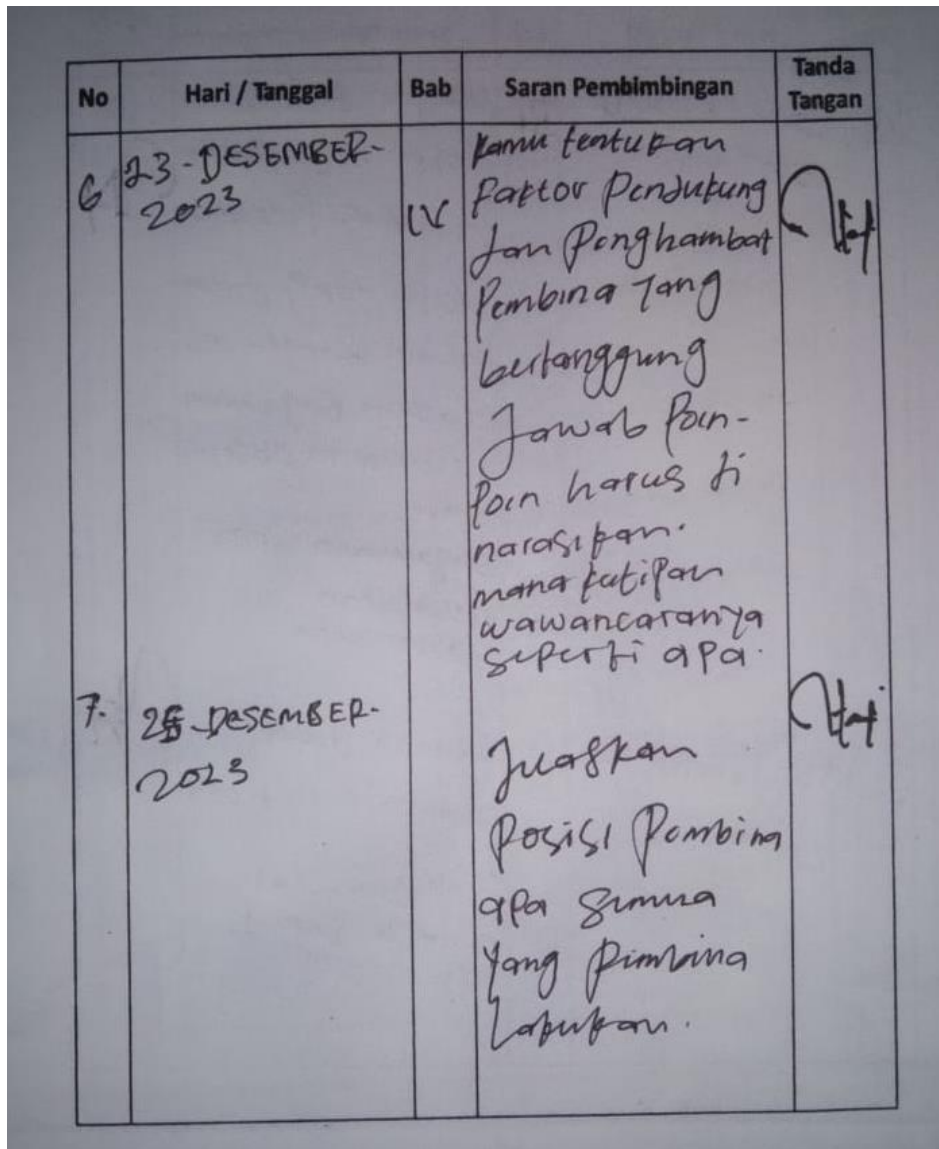 No Hari / Tanggal Bab Saran Pembimbingan Tanda Tangan
6 23-DESEMBER-2023 IV
kamu tentukan
faktor Pendukung
dan Penghambat
Pembina Yang
bertanggung
Jawab Poin-
Poin harus di
narasikan.
mana kutipan
wawancaranya
seperti apa.
7. 25-DESEMBER-
2023
Jelaskan
Posisi Pembina
apa semua
Yang Pembina
Lakukan.